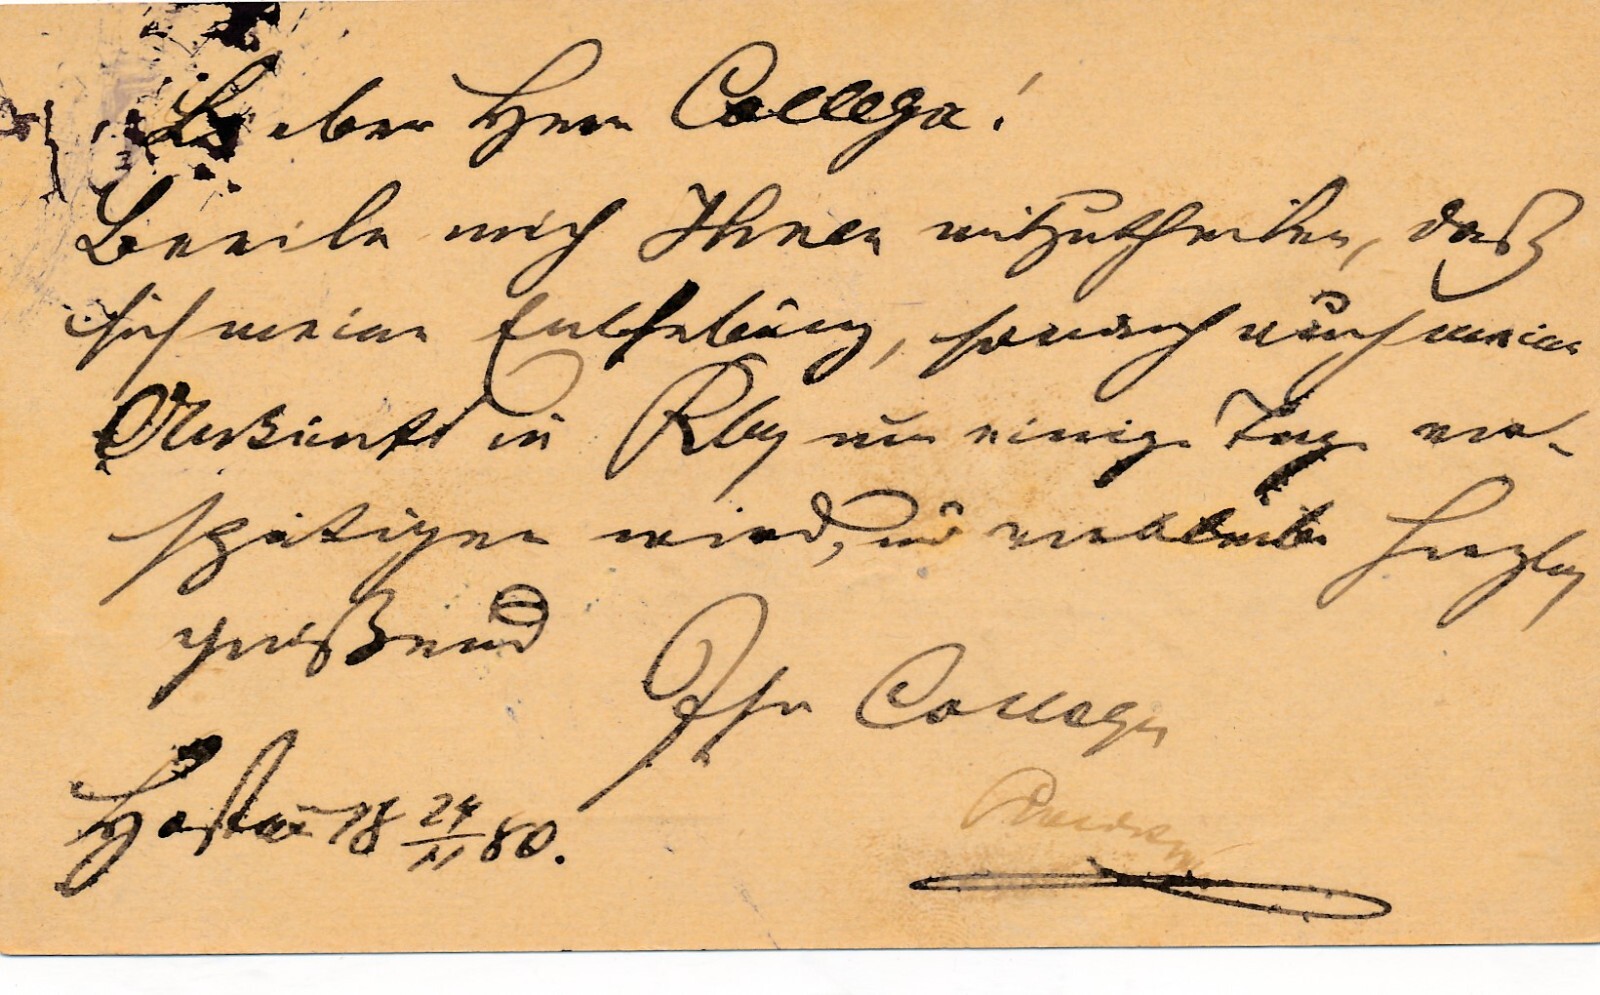 Lieber Herr Collega!
Beeile mich Ihnen mitzutheilen, daß
sich meine Enthebung, sonach auch meine
Ankunft in Rbg um einige Tage ver-
spätigen wird, u verbleibe herzlich
grüßend
Ihr Collega
18 24/11 80.